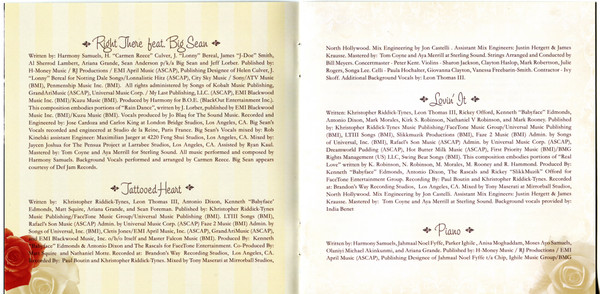 Right There feat. Big Sean
Written by: Harmony Samuels, H. "Carmen Reece" Culver, J. "Lonny" Bereal, James "J-Doe" Smith,
Al Sherrod Lambert, Ariana Grande, Sean Anderson p/k/a Big Sean and Jeff Lorber. Published by:
H-Money Music / RJ Productions / EMI April Music (ASCAP), Publishing Designee of Helen Culver, J.
"Lonny" Bereal for Notting Dale Songs/Lonnalistic Hitz (ASCAP), City Sky Music / Sony/ATV Music
(BMI), Pennmenship Music Inc. (BMI). All rights administered by Songs of Kobalt Music Publishing,
GrandAriMusic (ASCAP), Universal Music Corp. / My Last Publishing, LLC, (ASCAP), EMI Blackwood
Music Inc. (BMI)/Kuzu Music (BMI). Produced by Harmony for B.O.E. (BlackOut Entertainment Inc.).
This composition embodies portions of "Rain Dance", written by J. Lorber, published by EMI Blackwood
Music Inc. (BMI)/Kuzu Music (BMI). Vocals produced by Jo Blaq for The Sound Music. Recorded and
Engineered by: Jose Cardoza and Carlos King at London Bridge Studios, Los Angeles, CA. Big Sean's
Vocals recorded and engineered at Studio de la Reine, Paris, France. Big Sean's Vocals mixed by: Rob
Kinelski assistant Engineer: Maximilian Jaeger at 4220 Feng Shui Studios, Los Angeles, CA. Mixed by:
Jaycen Joshua for The Penua Project at Larrabee Studios, Los Angeles, CA. Assisted by Ryan Kaul.
Mastered by: Tom Coyne and Aya Merrill at Sterling Sound. All music performed and composed by
Harmony Samuels. Background Vocals performed and arranged by Carmen Reece. Big Sean appears
courtesy of Def Jam Records.
Tattooed Heart
Written by: Khristopher Riddick-Tynes, Leon Thomas III, Antonio Dixon, Kenneth "Babyface"
Edmonds, Matt Squire, Ariana Grande, and Sean Foreman. Published by: Khristopher Riddick-Tynes
Music Publishing/FaceTone Music Group/Universal Music Publishing (BMI), LTHI Songs (BMI),
Rafael's Son Music (ASCAP) Admin. by Universal Music Corp. (ASCAP), Faze 2 Music (BMI) Admin. by
Songs of Universal, Inc. (BMI), Cletis Jones/EMI April Music, Inc. (ASCAP), GrandAriMusic (ASCAP),
and EMI Blackwood Music, Inc. o/b/o Itself and Master Falcon Music (BMI). Produced by: Kenneth
"Babyface" Edmonds & Antonio Dixon and The Rascals for FaceTone Entertainment. Co-Produced By:
Matt Squire and Nathaniel Motte. Recorded at: Brandon's Way Recording Studios, Los Angeles, CA.
Recorded By: Paul Boutin and Khristopher Riddick-Tynes. Mixed by Tony Maserati at Mirrorball Studios,
North Hollywood. Mix Engineering by Jon Castelli. Assistant Mix Engineers: Justin Hergett & James
Krausse. Mastered by: Tom Coyne and Aya Merrill at Sterling Sound. Strings Arranged and Conducted by
Bill Meyers. Concertmaster - Peter Kent. Violins - Sharon Jackson, Clayton Haslop, Mark Robertson, Julie
Rogers, Songa Lee. Celli - Paula Hochalter, Giovanna Clayton, Vanessa Freebairn-Smith. Contractor - Ivy
Skoff. Additional Background Vocals by: Leon Thomas III.
Lovin' It
Written: Khristopher Riddick-Tynes, Leon Thomas III, Rickey Offord, Kenneth "Babyface" Edmonds,
Antonio Dixon, Mark Morales, Kirk S. Robinson, Nathaniel V Robinson, and Mark Rooney. Published
by: Khristopher Riddick-Tynes Music Publishing/FaceTone Music Group/Universal Music Publishing
(BMI), LTHI Songs (BMI), Slikkmuzik Productions (BMI), Faze 2 Music (BMI) Admin. by Songs of
Universal, Inc. (BMI), Rafael's Son Music (ASCAP) Admin. by Universal Music Corp. (ASCAP),
Dreamworld Pudding (ASCAP), Hot Butter Milk Music (ASCAP), First Priority Music (BMI)/BMG
Rights Management (US) LLC, Swing Beat Songs (BMI). This composition embodies portions of "Real
Love" written by K. Robinson, N. Robinson, M. Morales, M. Rooney and R. Hammond. Produced By:
Kenneth "Babyface" Edmonds, Antonio Dixon, The Rascals and Rickey "SlikkMuzik" Offord for
FaceTone Entertainment Group. Recording By: Paul Boutin and Khristopher Riddick-Tynes. Recorded
at: Brandon's Way Recording Studios, Los Angeles, CA. Mixed by Tony Maserati at Mirrorball Studios,
North Hollywood. Mix Engineering by Jon Castelli. Assistant Mix Engineers: Justin Hergett & James
Krausse. Mastered by: Tom Coyne and Aya Merrill at Sterling Sound. Background vocals provided by:
India Benet
Piano
Written by: Harmony Samuels, Jahmaal Noel Fyffe, Parker Ighile, Anisa Moghaddam, Moses Ayo Samuels,
Olaniyi Michael Akinkunmi, and Ariana Grande. Published by: H-Money Music / RJ Productions / EMI
April Music (ASCAP), Publishing Designee of Jahmaal Noel Fyffe t/a Chip, Ighile Music Group/BMG